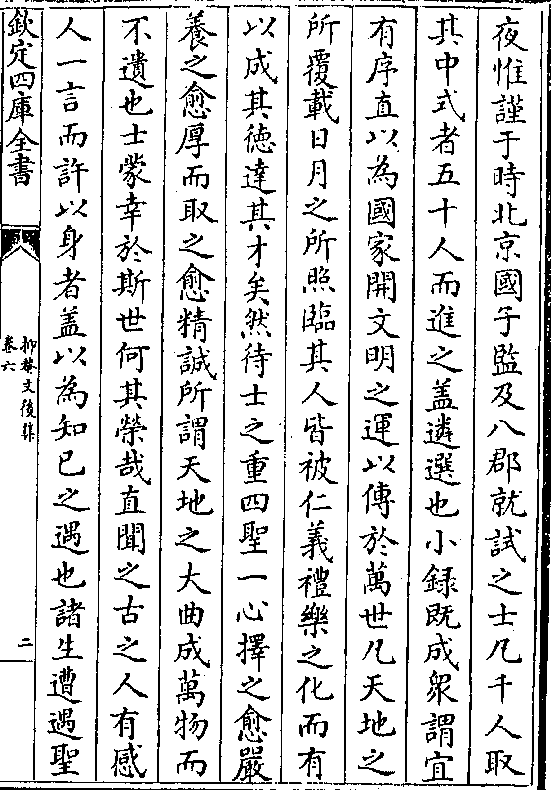 夜惟謹于時北京國子監及八郡就試之士凡千人取
其中式者五十人而進之盖遴選也小録既成衆謂宜
有序直以為國家開文明之運以傳於萬世凡天地之
所覆載日月之所照臨其人皆被仁義禮樂之化而有
以成其徳達其才矣然待士之重四聖一心擇之愈嚴
養之愈厚而取之愈精誠所謂天地之大曲成萬物而
不遺也士蒙幸於斯世何其榮哉直聞之古之人有感
人一言而許以身者盖以為知已之遇也諸生遭遇聖
欽定四庫全書
抑菴文後集
卷六
二